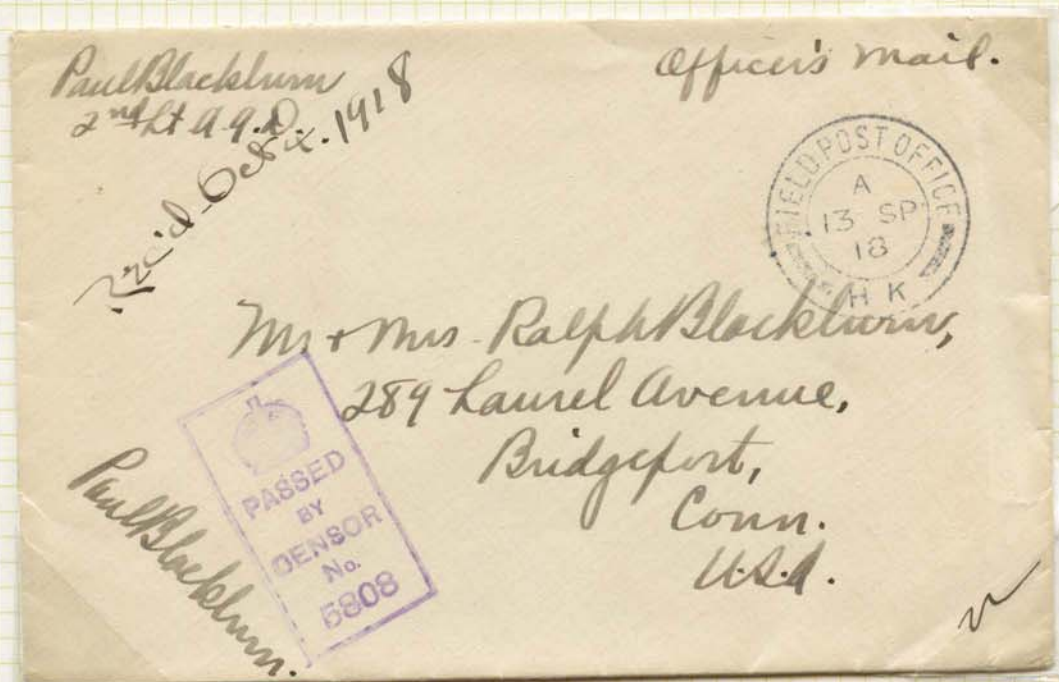 Paul Blackburn
2nd Lt A.G.D.
Officer's Mail.
Rec'd Oct 1918
FIELD POST OFFICE
A
13 SP
18
H K
Mr + Mrs. Ralph Blackburn,
289 Laurel Avenue,
Bridgeport,
Conn.
U.S.A.
PASSED
BY
CENSOR
No.
5808
Paul Blackburn.